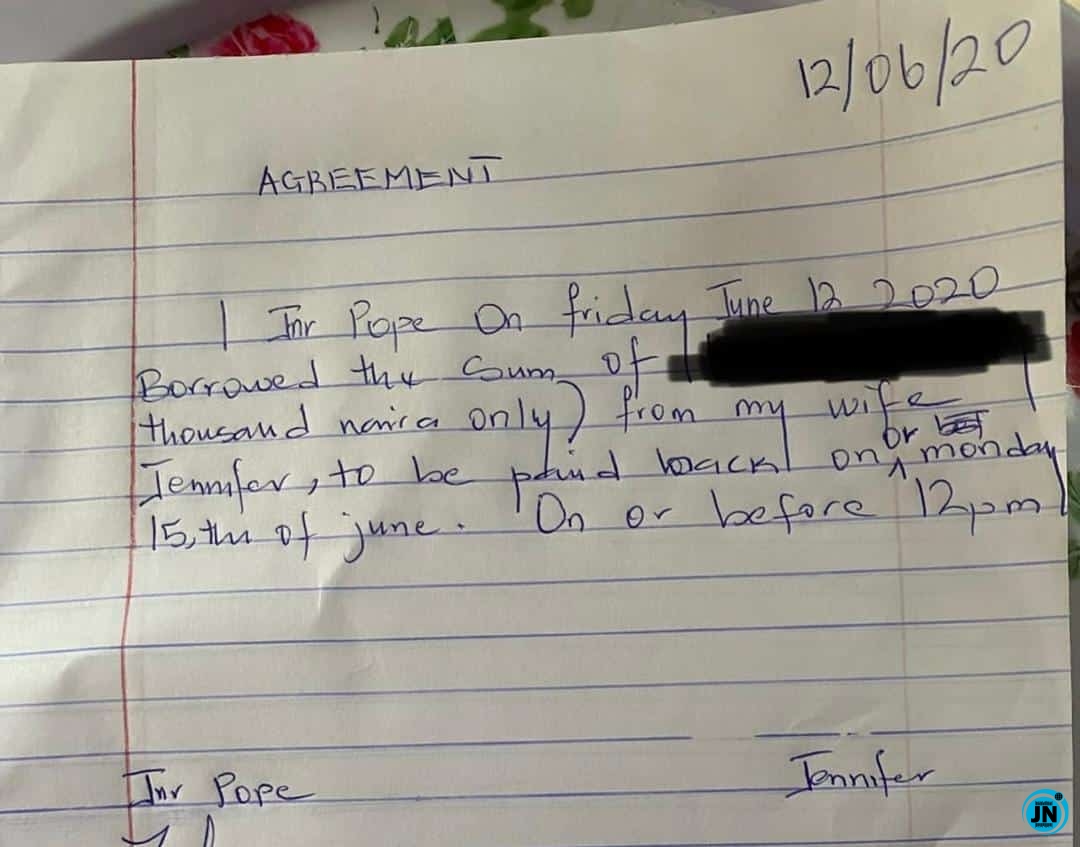 12/06/20
AGREEMENT
I Jnr Pope On friday June 12 2020
Borrowed the Sum of
thousand naira only) from my wife
Jennifer, to be paid back on or monday
15,th of june. On or before 12pm
Jnr Pope
Jennifer
JN